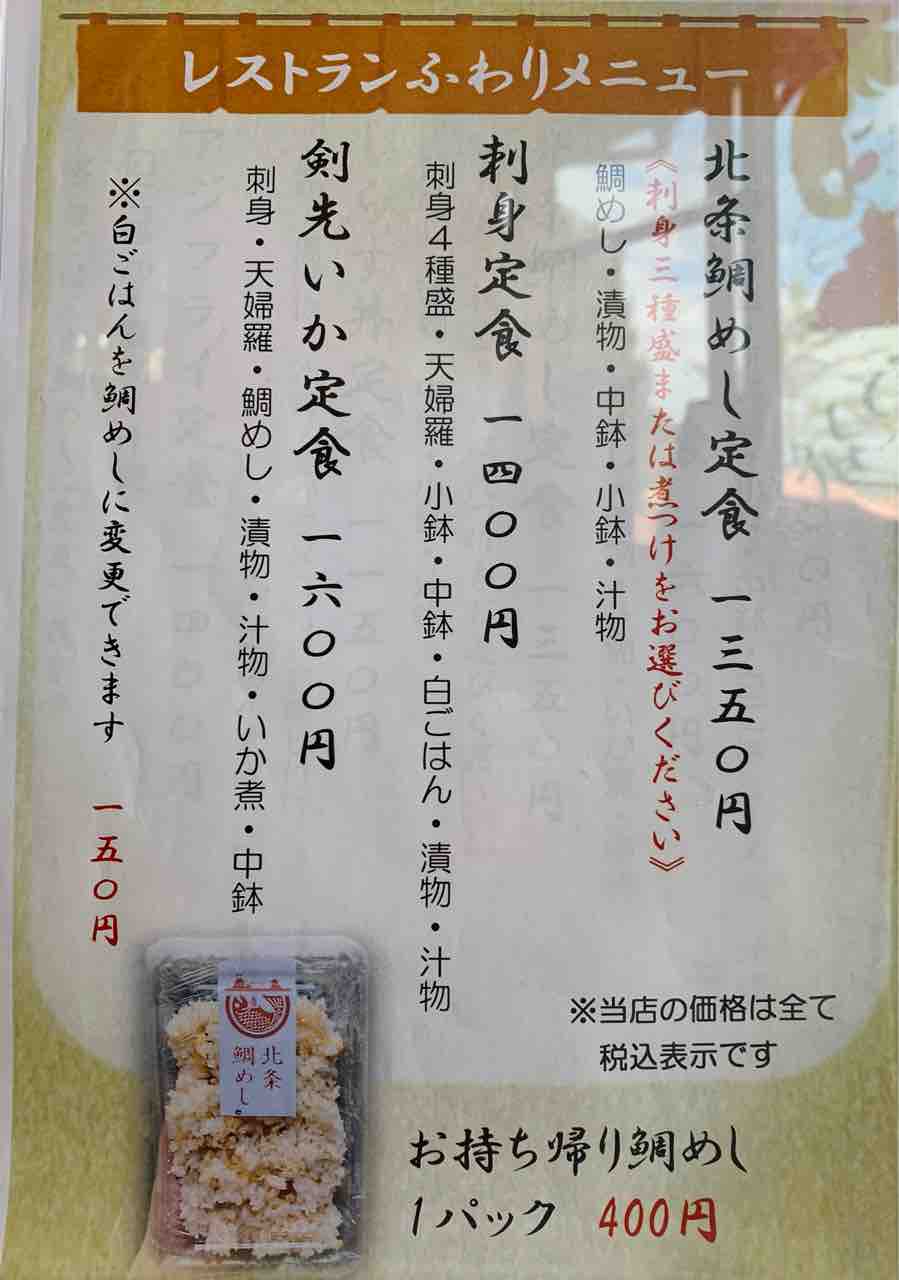 レストランふわりメニュー
北条鯛めし定食 一三五〇円
《刺身三種盛または煮つけをお選びください》
鯛めし・漬物・中鉢・小鉢・汁物
刺身定食 一四〇〇円
刺身4種盛・天婦羅・小鉢・中鉢・白ごはん・漬物・汁物
剣先いか定食 一六〇〇円
刺身・天婦羅・鯛めし・漬物・汁物・いか煮・中鉢
※白ごはんを鯛めしに変更できます 一五〇円
※当店の価格は全て
税込表示です
北条
鯛めし
お持ち帰り鯛めし
1パック 400円